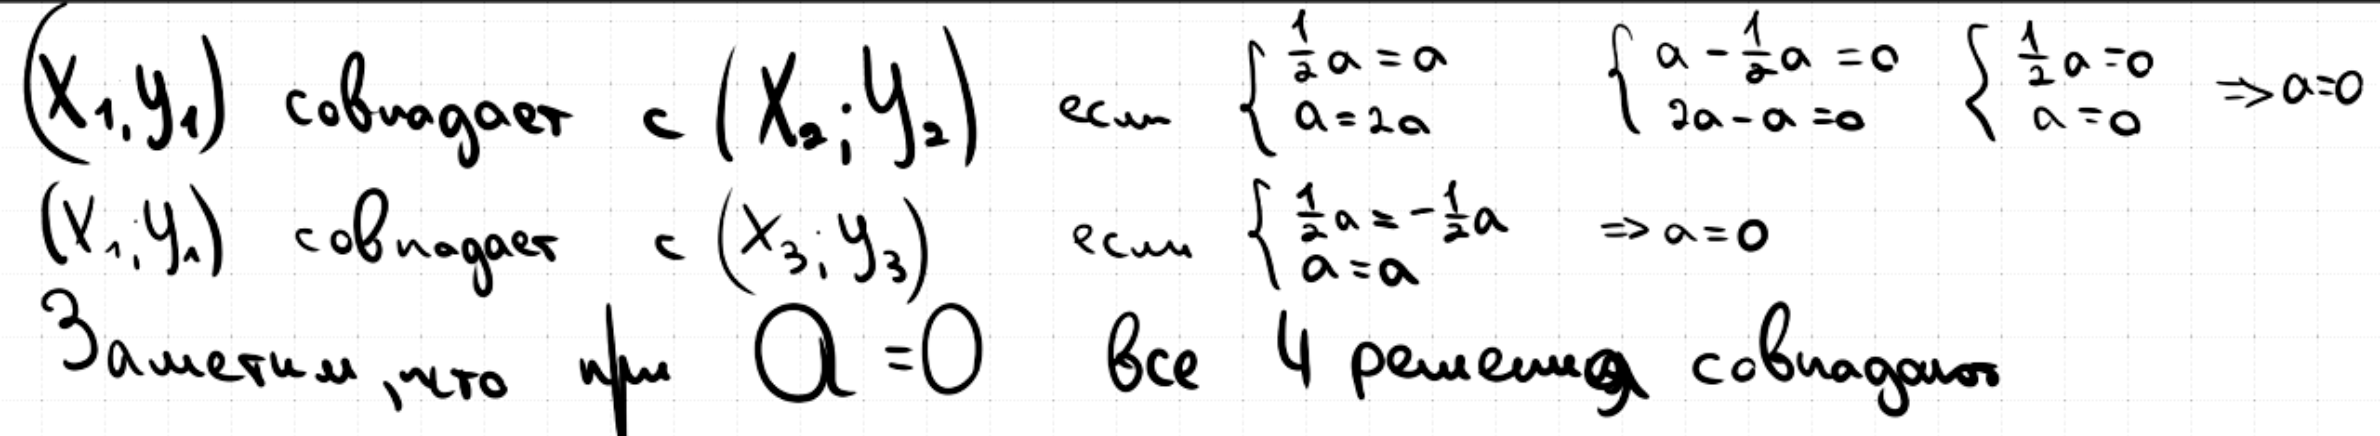 (x₁, y₁) совпадает с (x₂; y₂) если { ½a = a; a = 2a { a - ½a = 0; 2a - a = 0 { ½a = 0; a = 0 => a = 0
(x₁; y₁) совпадает с (x₃; y₃) если { ½a = -½a; a = a => a = 0
Заметим, что при a = 0 все 4 решения совпадают